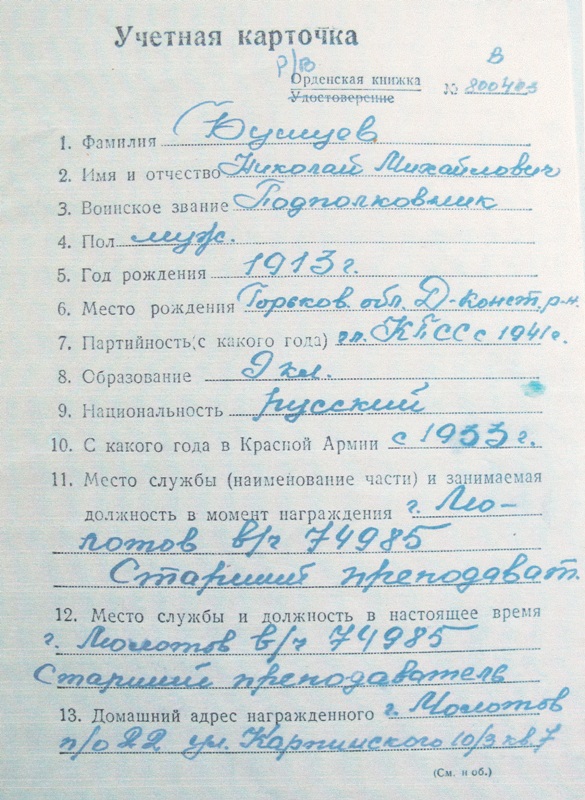 Учетная карточка
р/в В
Орденская книжка
Удостоверение № 200403
1. Фамилия
2. Имя и отчество Николай Михайлович
3. Воинское звание Подполковник
4. Пол муж.
5. Год рождения 1913 г.
6. Место рождения Горьков. обл. Д-Конст. р-н.
7. Партийность(с какого года) чл. КПСС с 1941 г.
8. Образование 9 кл.
9. Национальность русский
10. С какого года в Красной Армии с 1933 г.
11. Место службы (наименование части) и занимаемая
должность в момент награждения г. Мо-
лотов в/ч 74985
Старший преподават.
12. Место службы и должность в настоящее время
г. Молотов в/ч 74985
Старший преподаватель
13. Домашний адрес награжденного г. Молотов
п/о 22 ул. Карпинского 10/3 кв. 7
(См. н об.)